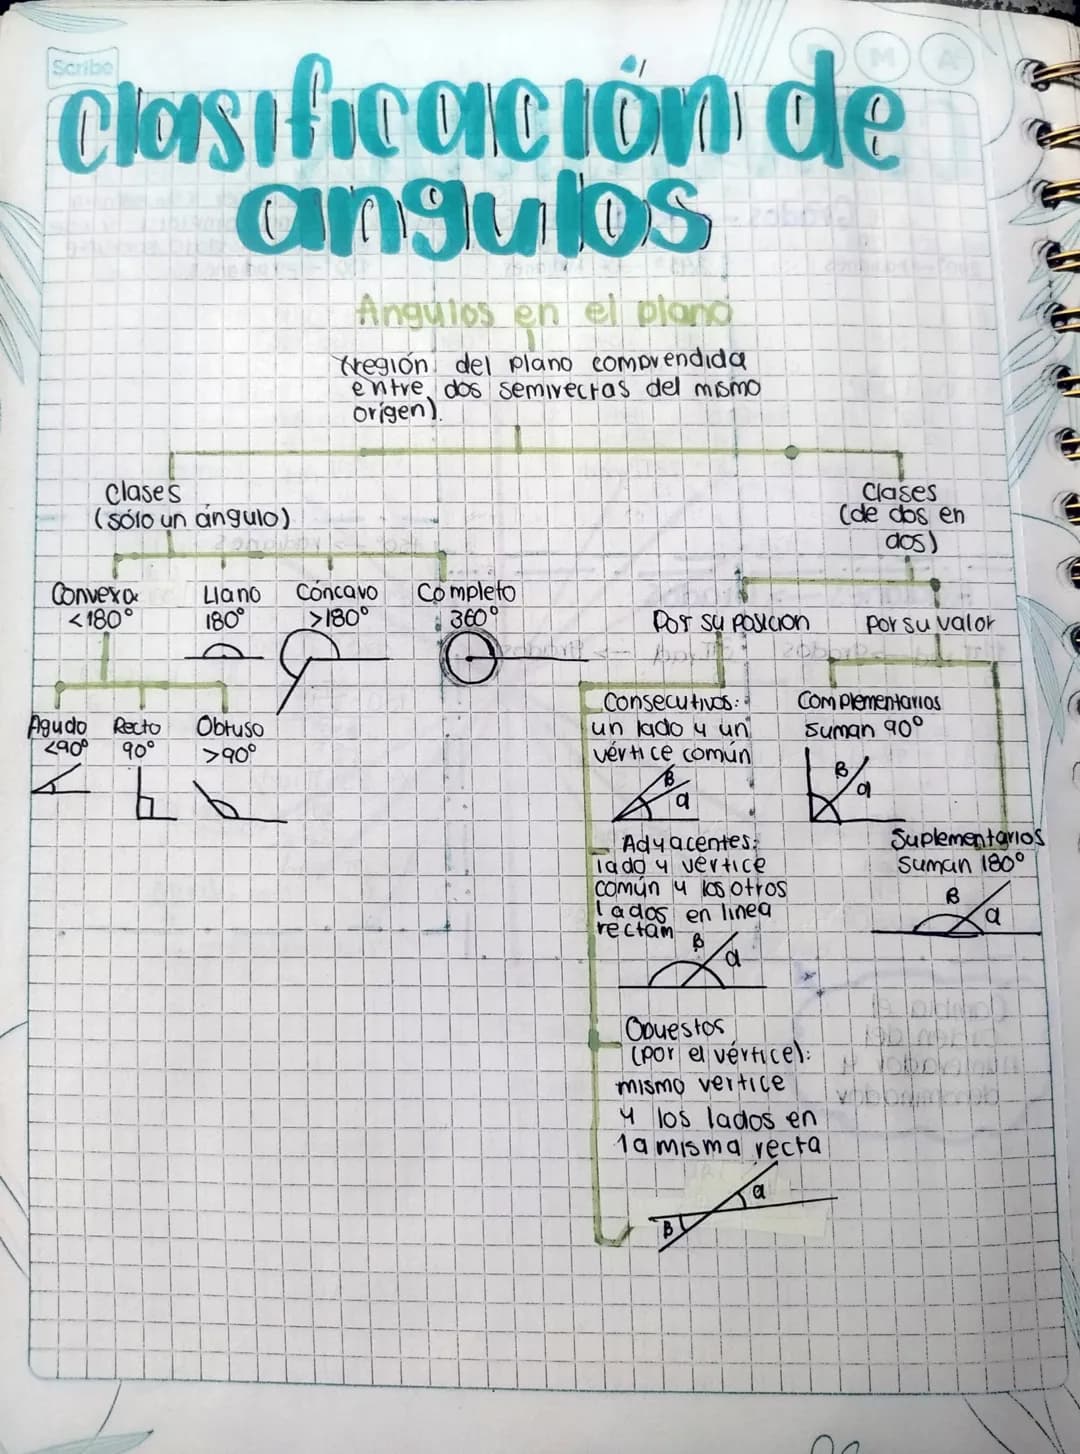 Scribe
Clasificación de
angulos
Angulos en el plano
(región del plano comprendida
entre dos semirectas del mismo
origen).
Clases
(sólo un ángulo)
Clases
(de dos en
dos)
Convexo
<180°
Llano
180°
Cóncavo
>180°
Completo
360°
Agudo
<90°
Recto
90°
Obtuso
>90°
Por su posicion
por su valor
Consecutivos:
un lado y un
vértice común
B
a
Adyacentes:
lado y vertice
común y los otros
lados en linea
rectam
B
a
Opuestos
(por el vértice):
mismo vertice
y los lados en
la misma recta
a
B
Complementarios
Suman 90°
B
a
Suplementarios
Suman 180°
B
a